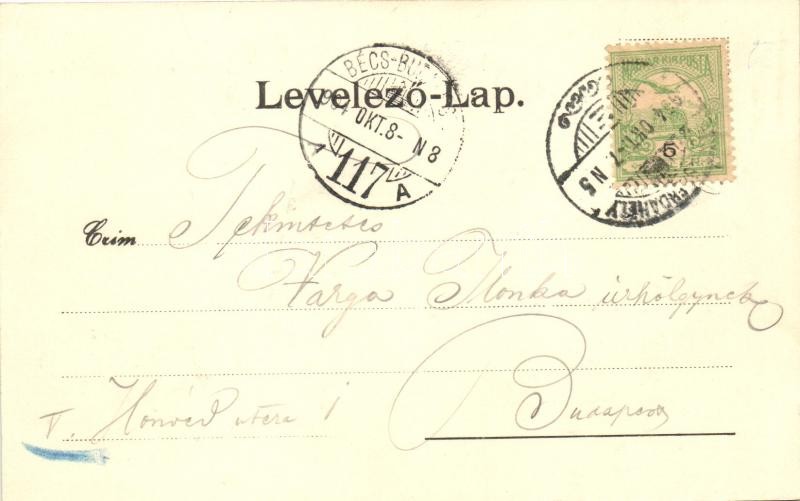 Levelező-Lap.
BÉCS-BU
OKT. 8- N 8
117 A
MAGYAR KIR. POSTA
5
ERDAHELY
N 5
Czim
Tekintetes
Varga Ilonka úrhölgynek
V. Honvéd utcza 1
Budapest